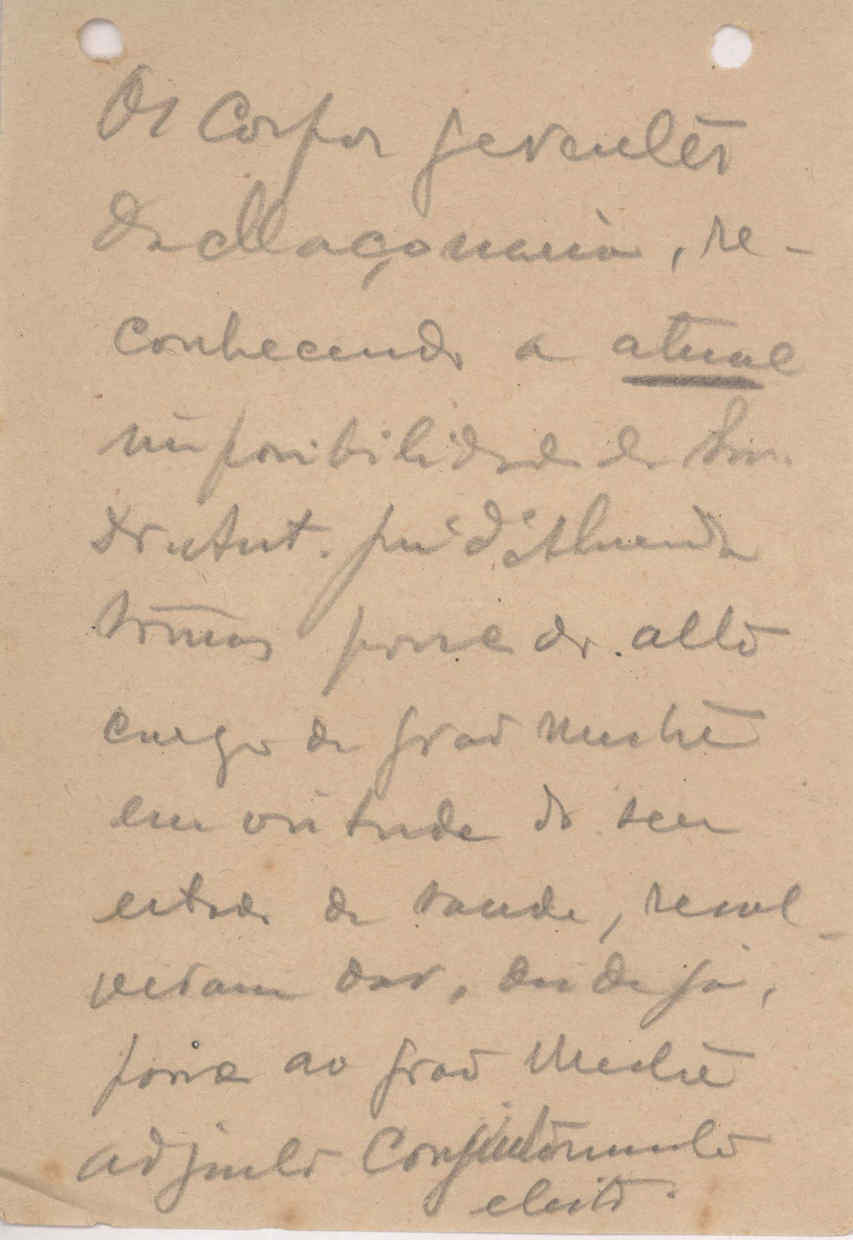 Os Corpos gerentes
da Maçonaria, re-
conhecendo a atual
impossibilidade do Sr.
Dr. Ant. José d'Almeida
tomar posse do alto
cargo de Grao Mestre
em virtude do seu
estado de saude, resol-
veram dar, desde já,
posse ao Grao Mestre
adjunto
eleito.